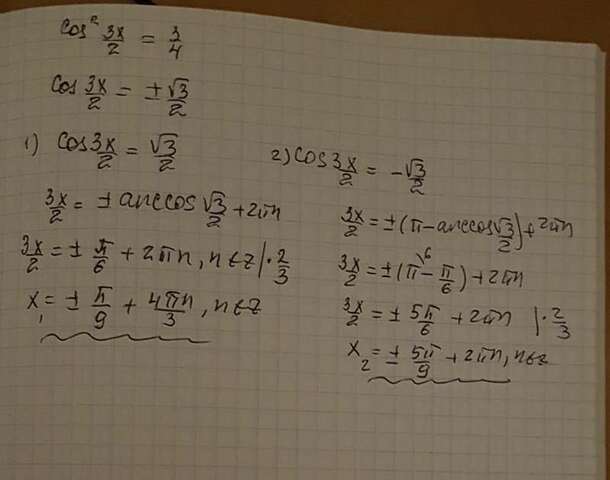 cos² 3x/2 = 3/4
cos 3x/2 = ± √3/2
1) cos 3x/2 = √3/2
3x/2 = ± arccos √3/2 + 2πn
3x/2 = ± π/6 + 2πn, n∈z |· 2/3
x₁ = ± π/9 + 4πn/3, n∈z
2) cos 3x/2 = - √3/2
3x/2 = ± (π - arccos √3/2) + 2πn
3x/2 = ± (π\6 - π/6) + 2πn
3x/2 = ± 5π/6 + 2πn |· 2/3
x₂ = ± 5π/9 + 2πn, n∈z